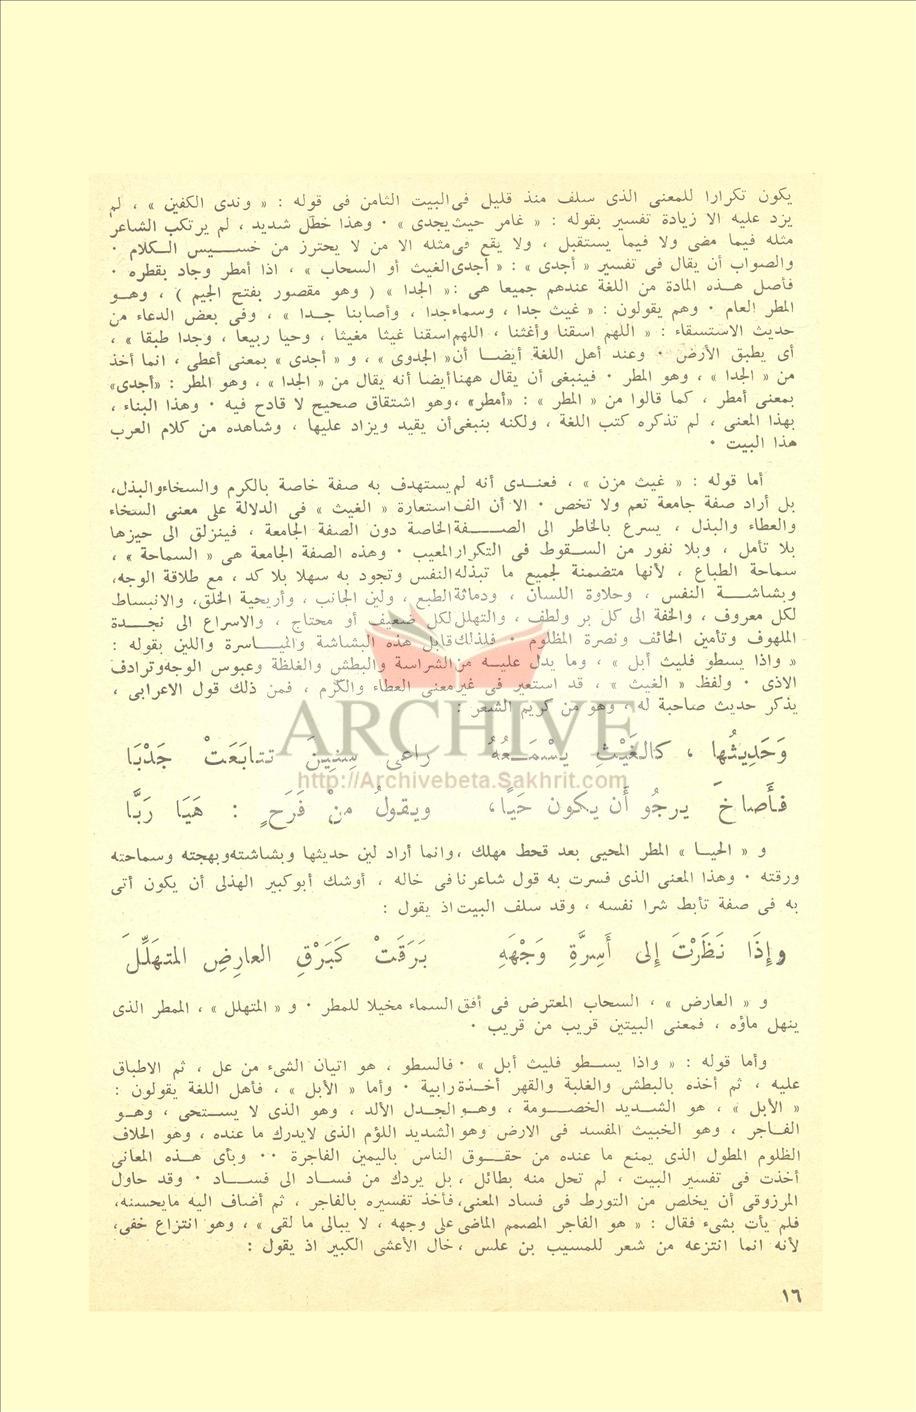 يكون تكرارا للمعنى الذى سلف منذ قليل فى البيت الثامن فى قوله : « وندى الكفين » ، لم
يزد عليه الا زيادة تفسير بقوله : « غامر حيث يجدى » ٠ وهذا خطل شديد ، لم يرتكب الشاعر
مثله فيما مضى ولا فيما يستقبل ، ولا يقع فى مثله الا من لا يحترز من خسيس الكلام ٠
والصواب أن يقال فى تفسير « أجدى » : « أجدى الغيث أو السحاب » ، اذا أمطر وجاد بقطره ٠
فأصل هذه المادة من اللغة عندهم جميعا هى : « الجدا » ( وهو مقصور بفتح الجيم ) ، وهو
المطر العام ٠ وهم يقولون : « غيث جدا ، وسماء جدا ، وأصابنا جدا » ، وفى بعض الدعاء من
حديث الاستسقاء : « اللهم اسقنا وأغثنا ، اللهم اسقنا غيثا مغيثا ، وحيا ربيعا ، وجدا طبقا » ،
أى يطبق الأرض ٠ وعند أهل اللغة أيضا أن « الجدوى » ، و « أجدى » بمعنى أعطى ، انما أخذ
من « الجدا » ، وهو المطر ٠ فينبغى أن يقال ههنا أيضا أنه يقال من « الجدا » ، وهو المطر : «أجدى»
بمعنى أمطر ، كما قالوا من « المطر » : «أمطر» ، وهو اشتقاق صحيح لا قادح فيه ٠ وهذا البناء ،
بهذا المعنى ، لم تذكره كتب اللغة ، ولكنه ينبغى أن يقيد ويزاد عليها ، وشاهده من كلام العرب
هذا البيت ٠
أما قوله : « غيث مزن » ، فعندى أنه لم يستهدف به صفة خاصة بالكرم والسخاء والبذل،
بل أراد صفة جامعة تعم ولا تخص ٠ الا أن الف استعارة « الغيث » فى الدلالة على معنى السخاء
والعطاء والبذل ، يسرع بالخاطر الى الصفة الخاصة دون الصفة الجامعة ، فينزلق الى حيزها
بلا تأمل ، وبلا نفور من السقوط فى التكرار المعيب ٠ وهذه الصفة الجامعة هى « السماحة » ،
سماحة الطباع ، لأنها متضمنة لجميع ما تبذله النفس وتجود به سهلا بلا كد ، مع طلاقة الوجه،
وبشاشة النفس ، وحلاوة اللسان ، ودماثة الطبع ، ولين الجانب ، وأريحية الخلق، والانبساط
لكل معروف ، والخفة الى كل بر ولطف ، والتهلل لكل ضعيف أو محتاج ، والاسراع الى نجدة
الملهوف وتأمين الخائف ونصرة المظلوم ٠ فلذلك قابل هذه البشاشة والمياسرة واللين بقوله :
« واذا يسطو فليث أبل » ، وما يدل عليه من الشراسة والبطش والغلظة وعبوس الوجه وترادف
الاذى ٠ ولفظ « الغيث » ، قد استعير فى غير معنى العطاء والكرم ، فمن ذلك قول الاعرابى ،
يذكر حديث صاحبة له ، وهو من كريم الشعر :
وَحَدِيثُها ، كالغَيْثِ يَسْمَعُهُ راعى سِنينَ تتابَعَتْ جَدْبَا
فأَصاخَ يرجُو أن يكون حَيًا، ويقولُ منْ فَرَحٍ : هَيَا رَبَّا
و « الحيا » المطر المحيى بعد قحط مهلك ، وانما أراد لين حديثها وبشاشته وبهجته وسماحته
ورقته ٠ وهذا المعنى الذى فسرت به قول شاعرنا فى خاله ، أوشك أبو كبير الهذلى أن يكون أتى
به فى صفة تأبط شرا نفسه ، وقد سلف البيت اذ يقول :
وإذَا نَظَرْتَ إلى أَسِرَّةِ وَجْهَهِ بَرَقَتْ كَبَرْقِ العارِضِ المتهَلِّلَ
و « العارض » ، السحاب المعترض فى أفق السماء مخيلا للمطر ٠ و « المتهلل » ، الممطر الذى
ينهل ماؤه ، فمعنى البيتين قريب من قريب ٠
وأما قوله : « واذا يسطو فليث أبل » ٠ فالسطو ، هو اتيان الشىء من عل ، ثم الاطباق
عليه ، ثم أخذه بالبطش والغلبة والقهر أخذة رابية ٠ وأما « الأبل » ، فأهل اللغة يقولون :
« الأبل » ، هو الشديد الخصومة ، وهو الجدل الألد ، وهو الذى لا يستحى ، وهو
الفاجر ، وهو الخبيث المفسد فى الارض وهو الشديد اللؤم الذى لايدرك ما عنده ، وهو الحلاف
الظلوم المطول الذى يمنع ما عنده من حقوق الناس باليمين الفاجرة ٠٠ وبأى هذه المعانى
أخذت فى تفسير البيت ، لم تحل منه بطائل ، بل يردك من فساد الى فساد ٠ وقد حاول
المرزوقى أن يخلص من التورط فى فساد المعنى، فأخذ تفسيره بالفاجر ، ثم أضاف اليه مايحسنه،
فلم يأت بشىء فقال : « هو الفاجر المصمم الماضى على وجهه ، لا يبالى ما لقى » ، وهو انتزاع خفى،
لأنه انما انتزعه من شعر للمسيب بن علس ، خال الأعشى الكبير اذ يقول :
١٦
ARCHIVE
http://Archivebeta.Sakhrit.com